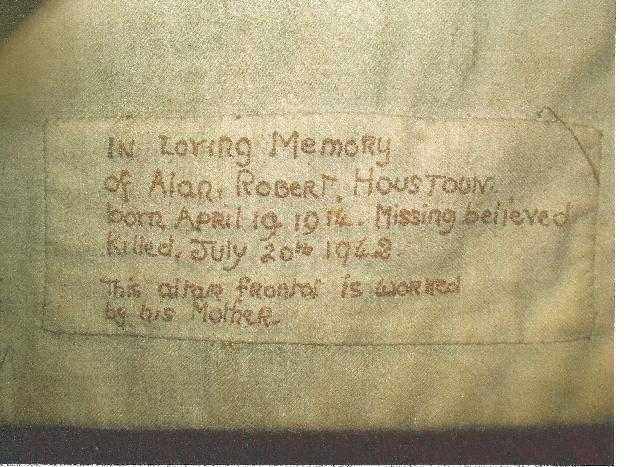 In Loving Memory
of Alan, Robert, Houstoun.
born, April 19 1914. Missing believed
Killed, July 20th 1942.
This altar frontal is worked
by his Mother.